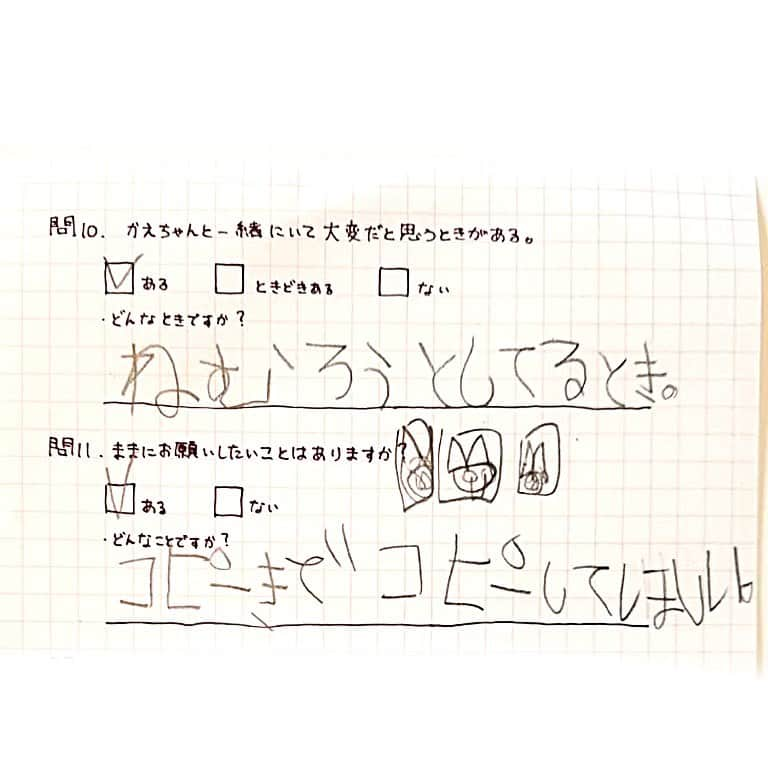 問10. かえちゃんと一緒にいて大変だと思うときがある。
ある ときどきある ない
・どんなときですか?
ねむろうとしてるとき。
問11. ままにお願いしたいことはありますか?
ある ない
・どんなことですか?
コピーきで コピーしてしほしい